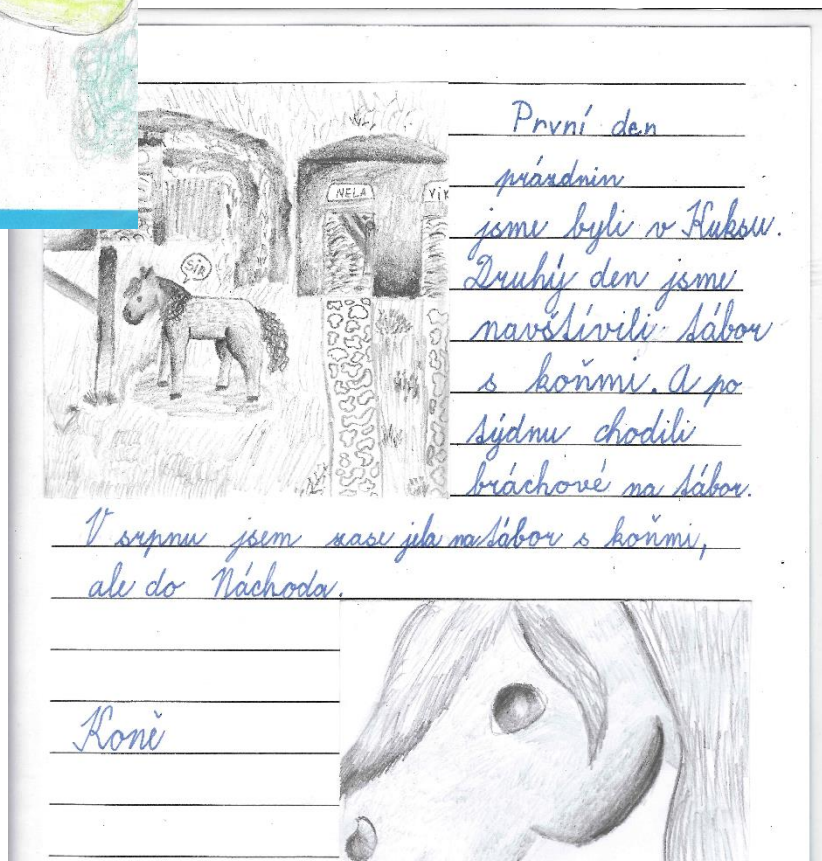 První den
prázdnin
jsme byli v Kuksu.
Druhý den jsme
navštívili tábor
s koňmi. A po
týdnu chodili
bráchové na tábor.
V srpnu jsem zase jela na tábor s koňmi,
ale do Náchoda.
NELA
VIK
SÍR
Koně